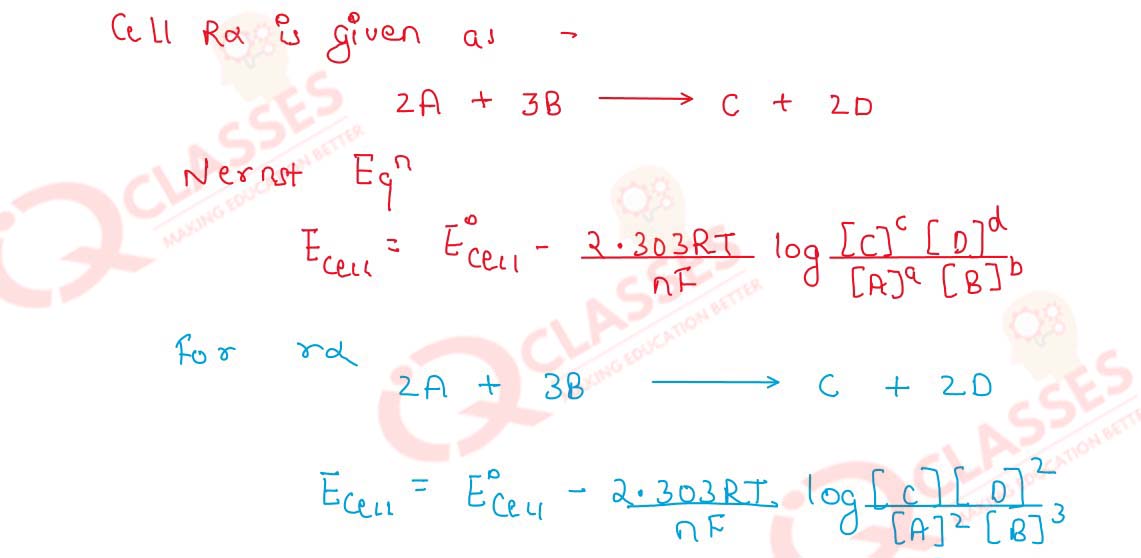 Cell Rα is given as -
2A + 3B ⟶ C + 2D
Nernst Eqⁿ
E_cell = E°_cell - 2.303RT/nF log [C]^c [D]^d / [A]^a [B]^b
For rα
2A + 3B ⟶ C + 2D
E_cell = E°_cell - 2.303RT/nF log [C][D]² / [A]² [B]³
IQ CLASSES
MAKING EDUCATION BETTER
IQ CLASSES
MAKING EDUCATION BETTER
IQ CLASSES
MAKING EDUCATION BETTER